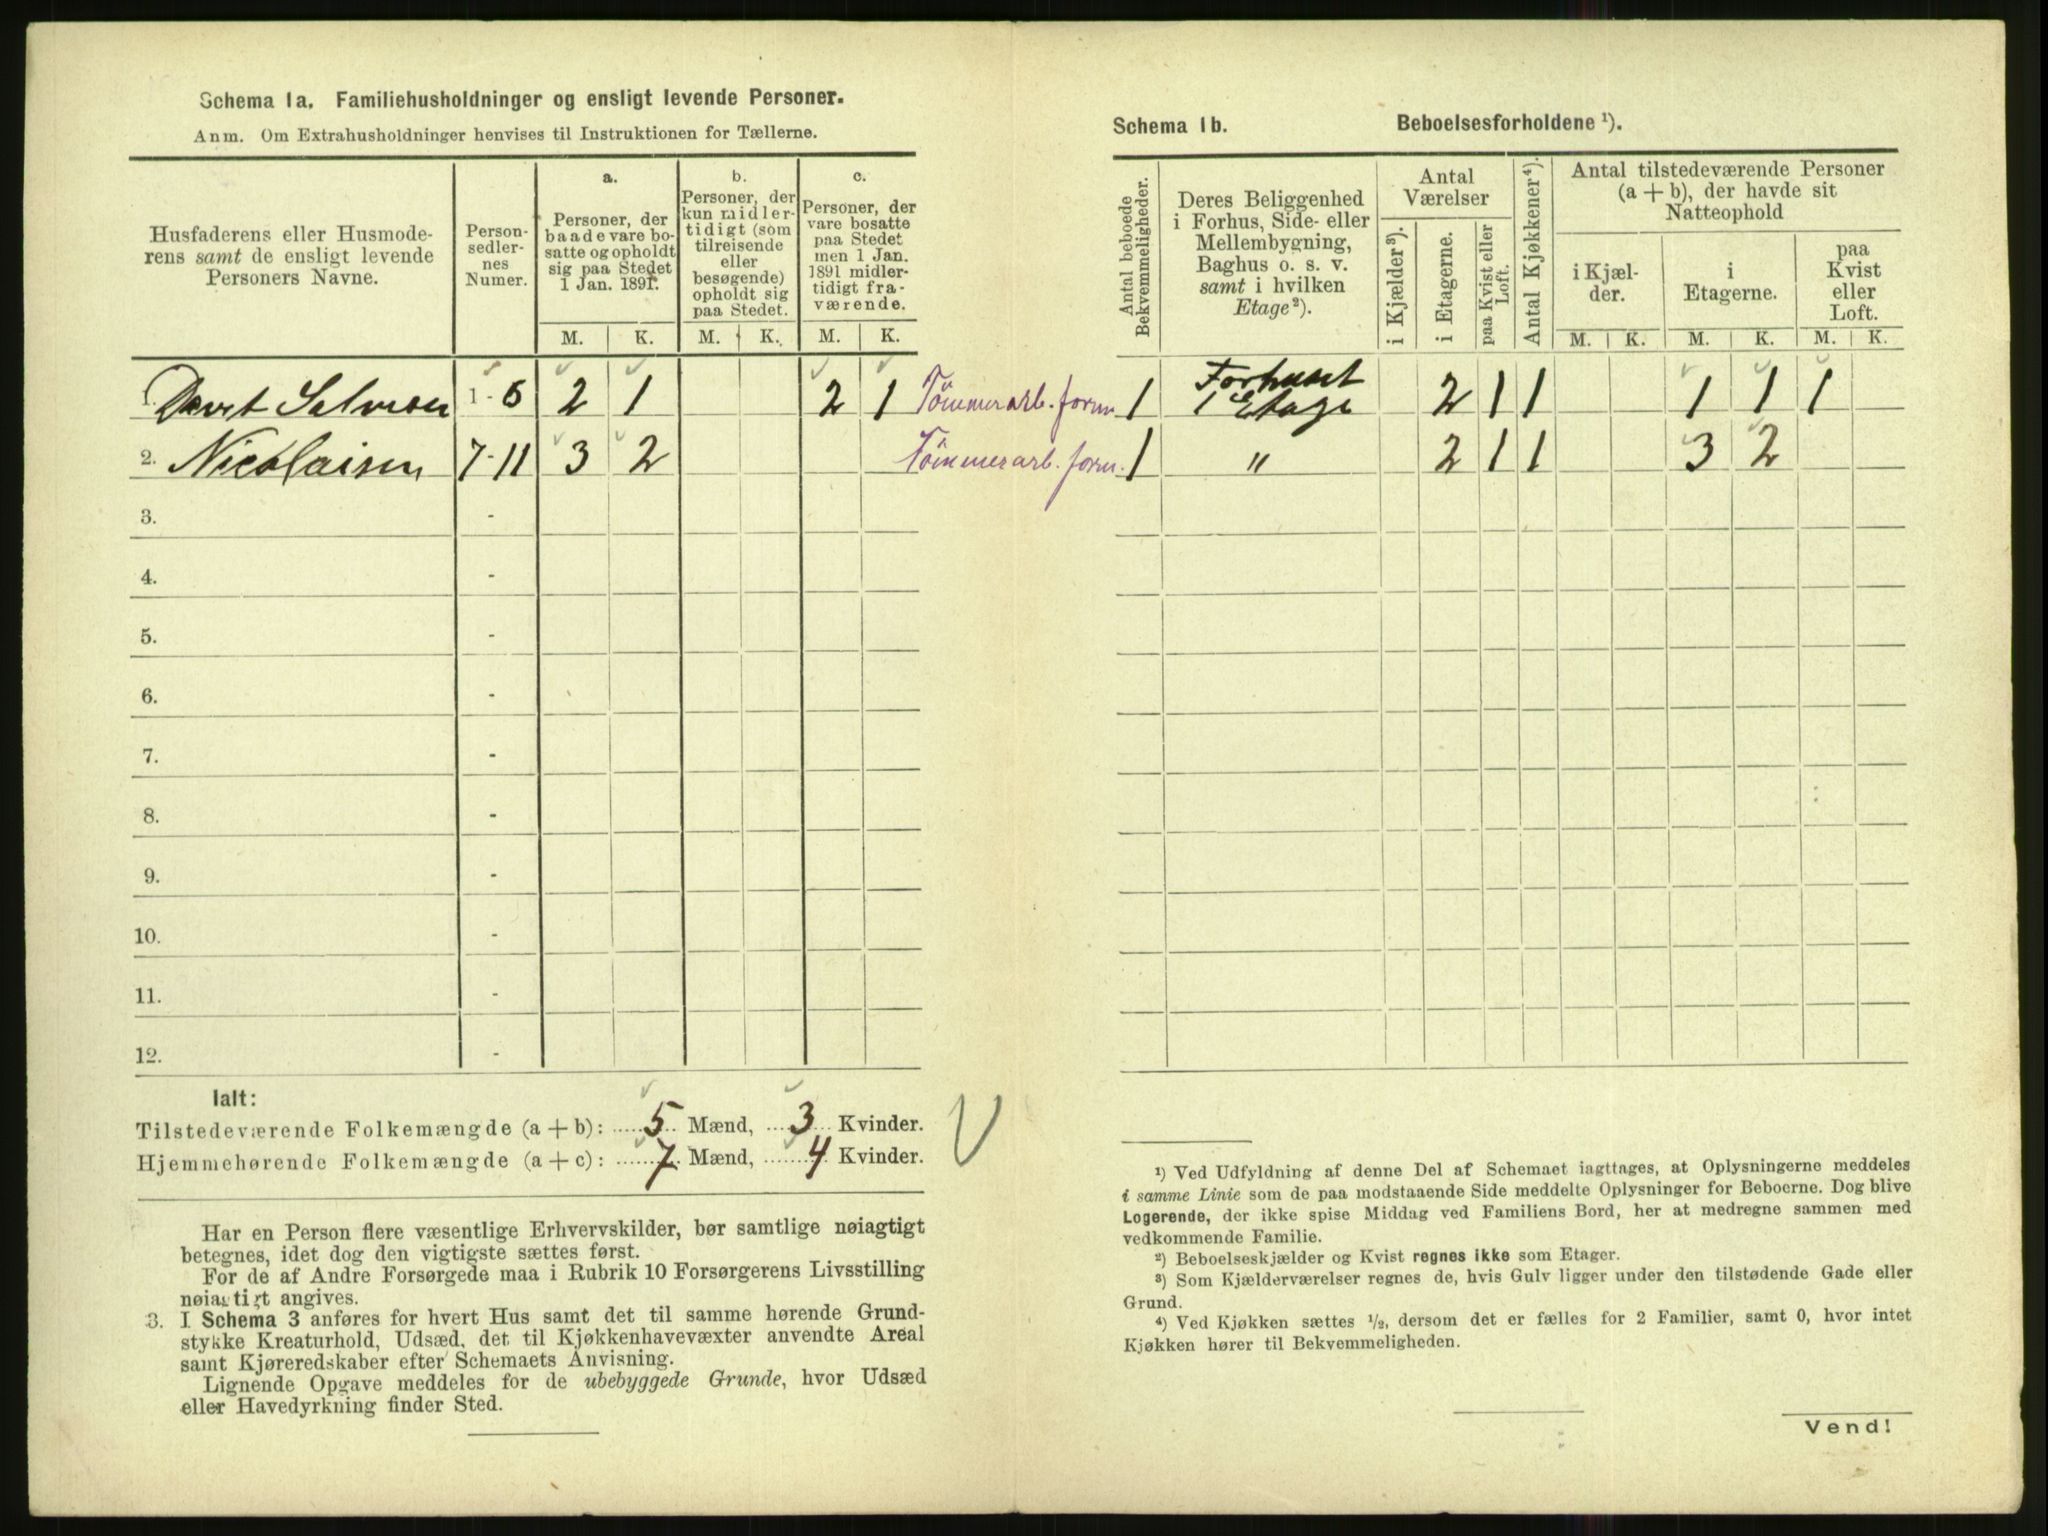 Schema 1a. Familiehusholdninger og ensligt levende Personer.
Anm. Om Extrahusholdninger henvises til Instruktionen for Tællerne.
Husfaderens eller Husmode-
rens samt de ensligt levende
Personers Navne.
Person-
sedler-
nes
Numer.
a.
Personer, der
baade vare bo-
satte og opholdt
sig paa Stedet
1 Jan. 1891.
M. K.
b.
Personer, der
kun midler-
tidigt (som
tilreisende
eller
besøgende)
opholdt sig
paa Stedet.
M. K.
c.
Personer, der
vare bosatte
paa Stedet
men 1 Jan.
1891 midler-
tidigt fra-
værende.
M. K.
1. Davet Salvesen 1-6 2 1 2 1 Tömmerarb. form.
2. Nicolaisen 7-11 3 2 Tömmerarb. form.
3. -
4. -
5. -
6. -
7. -
8. -
9. -
10. -
11. -
12. -
Ialt:
Tilstedeværende Folkemængde (a + b): 5 Mænd, 3 Kvinder.
Hjemmehørende Folkemængde (a + c): 7 Mænd, 4 Kvinder.
Har en Person flere væsentlige Erhvervskilder, bør samtlige nøiagtigt
betegnes, idet dog den vigtigste sættes først.
For de af Andre Forsørgede maa i Rubrik 10 Forsørgerens Livsstilling
nøiagtigt angives.
3. I Schema 3 anføres for hvert Hus samt det til samme hørende Grund-
stykke Kreaturhold, Udsæd, det til Kjøkkenhavevæxter anvendte Areal
samt Kjøreredskaber efter Schemaets Anvisning.
Lignende Opgave meddeles for de ubebyggede Grunde, hvor Udsæd
eller Havedyrkning finder Sted.
Schema 1b. Beboelsesforholdene ¹).
Antal beboede
Bekvemmeligheder.
Deres Beliggenhed
i Forhus, Side- eller
Mellembygning,
Baghus o. s. v.
samt i hvilken
Etage²).
Antal
Værelser
i Kjælder³).
i Etagerne.
paa Kvist eller
Loft.
Antal Kjøkkener⁴).
Antal tilstedeværende Personer
(a + b), der havde sit
Natteophold
i Kjæl-
der.
i
Etagerne.
paa
Kvist
eller
Loft.
M. K. M. K. M. K.
1 Forhuset
1 Etage 2 1 1 1 1 1
1 " 2 1 1 3 2
¹) Ved Udfyldning af denne Del af Schemaet iagttages, at Oplysningerne meddeles
i samme Linie som de paa modstaaende Side meddelte Oplysninger for Beboerne. Dog blive
Logerende, der ikke spise Middag ved Familiens Bord, her at medregne sammen med
vedkommende Familie.
²) Beboelseskjælder og Kvist regnes ikke som Etager.
³) Som Kjælderværelser regnes de, hvis Gulv ligger under den tilstødende Gade eller
Grund.
⁴) Ved Kjøkken sættes ¹/₂, dersom det er fælles for 2 Familier, samt 0, hvor intet
Kjøkken hører til Bekvemmeligheden.
Vend!